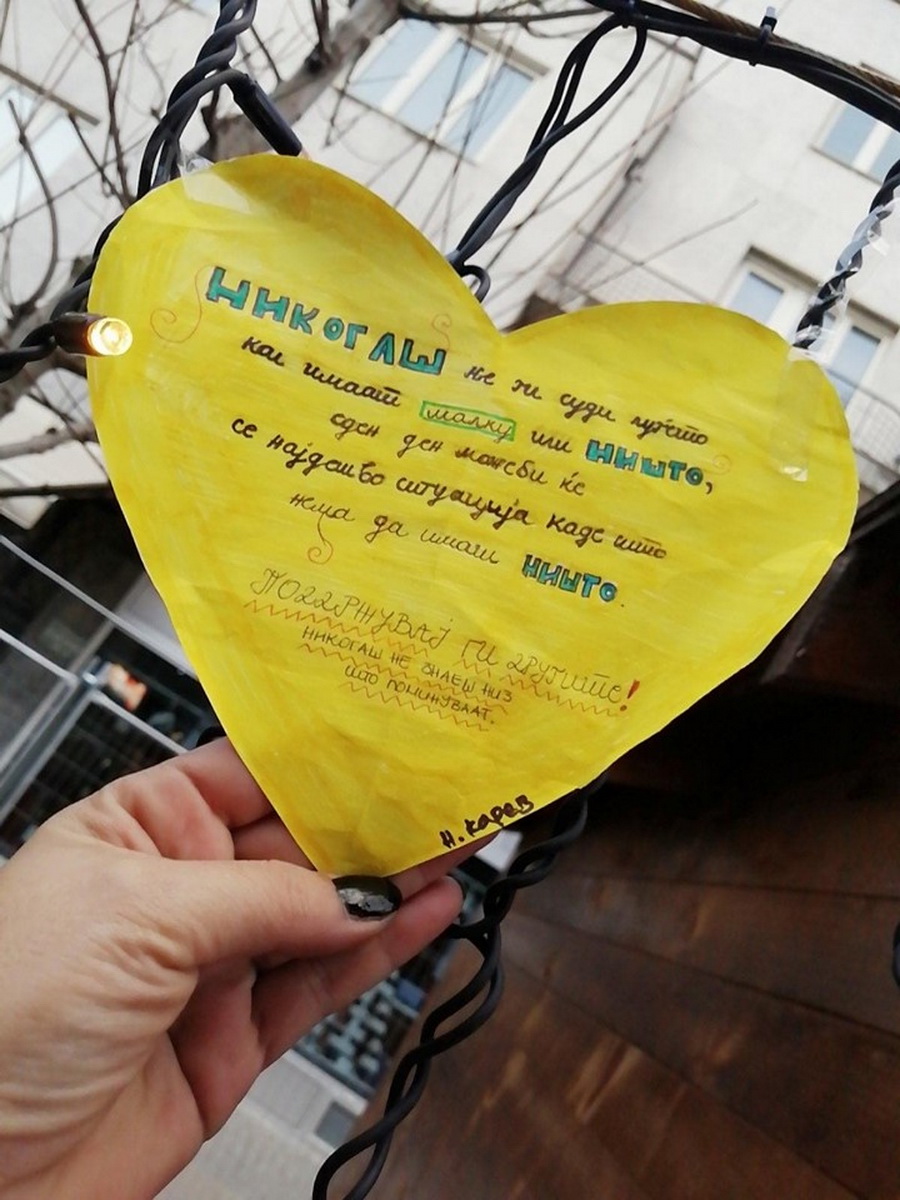 НИКОГАШ не ги суди луѓето
кои имаат малку или НИШТО,
еден ден можеби ќе
се најдеш во ситуација каде што
нема да имаш НИШТО.
ПОДДРЖУВАЈ ГИ ДРУГИТЕ!
НИКОГАШ НЕ ЗНАЕШ НИЗ
ШТО ПОМИНУВААТ.
Н. Карев